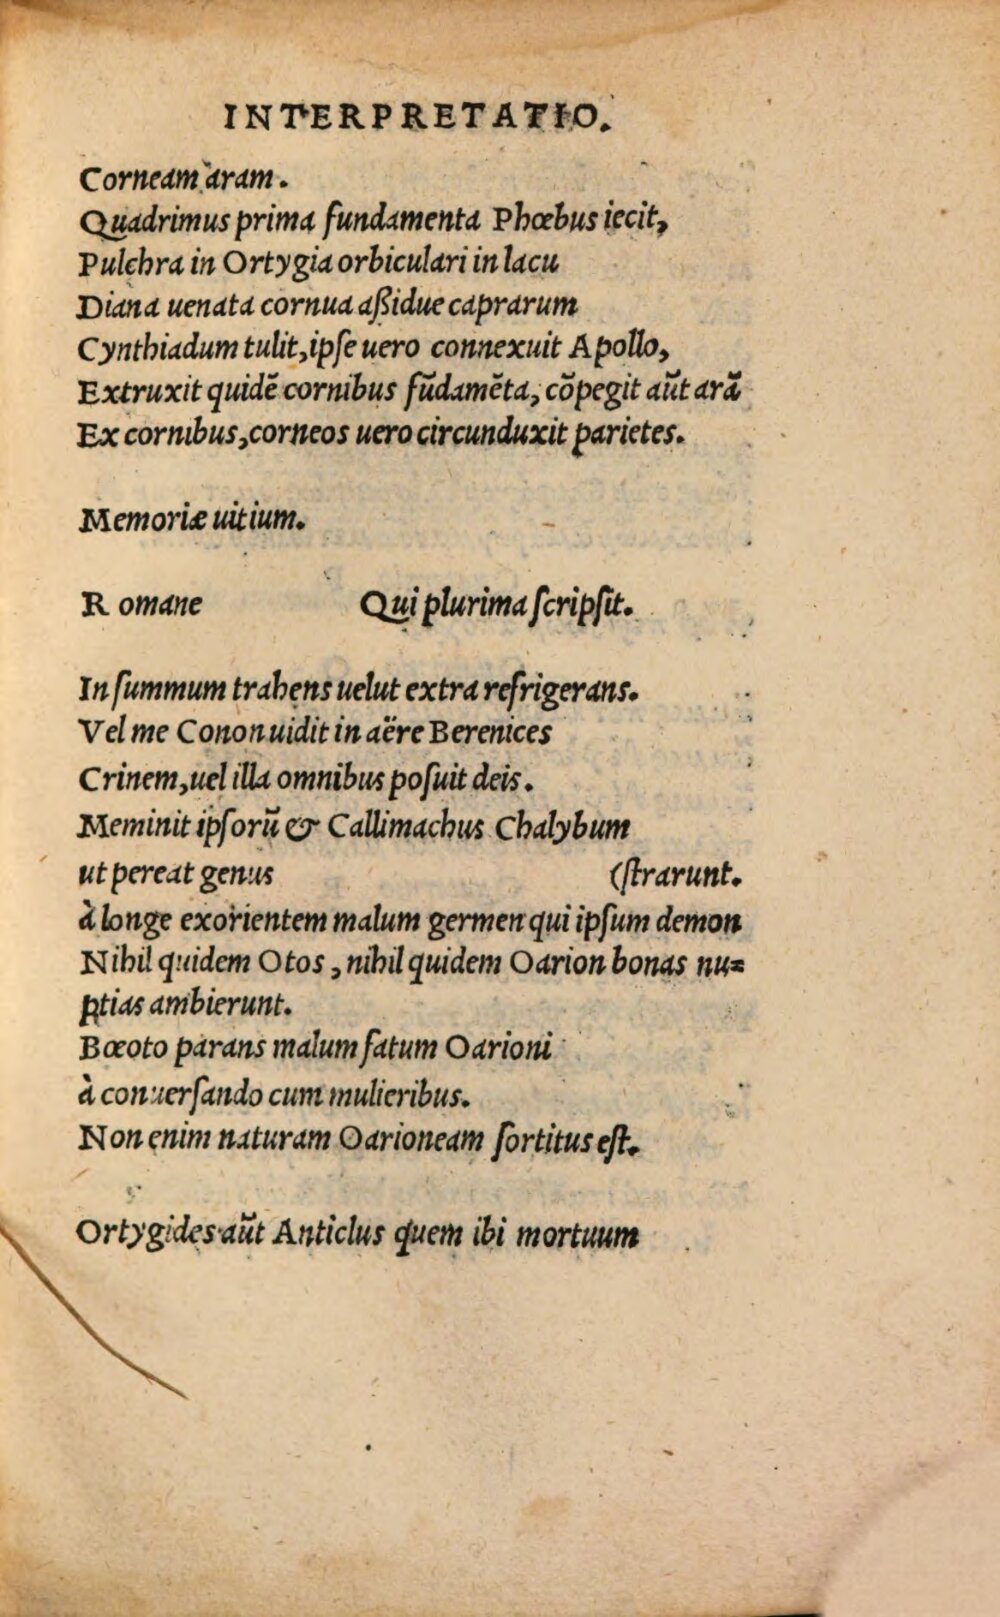 INTERPRETATIO.
Corneam aram.
Quadrimus prima fundamenta Phœbus iecit,
Pulchra in Ortygia orbiculari in lacu
Diana uenata cornua aßidue caprarum
Cynthiadum tulit, ipſe uero connexuit Apollo,
Extruxit quidẽ cornibus fũdamẽta, cõpegit aũt arã
Ex cornibus, corneos uero circunduxit parietes.
Memoriæ uitium.
Romane Qui plurima ſcripſit.
In ſummum trahens uelut extra refrigerans.
Vel me Conon uidit in aëre Berenices
Crinem, uel illa omnibus poſuit deis.
Meminit ipſorũ & Callimachus Chalybum
ut pereat genus (ſtrarunt.
à longe exorientem malum germen qui ipſum demon
Nihil quidem Otos, nihil quidem Oarion bonas nu=
ptias ambierunt.
Bœoto parans malum fatum Oarioni
à conuerſando cum mulieribus.
Non enim naturam Oarioneam ſortitus eſt.
Ortygides aũt Anticlus quem ibi mortuum